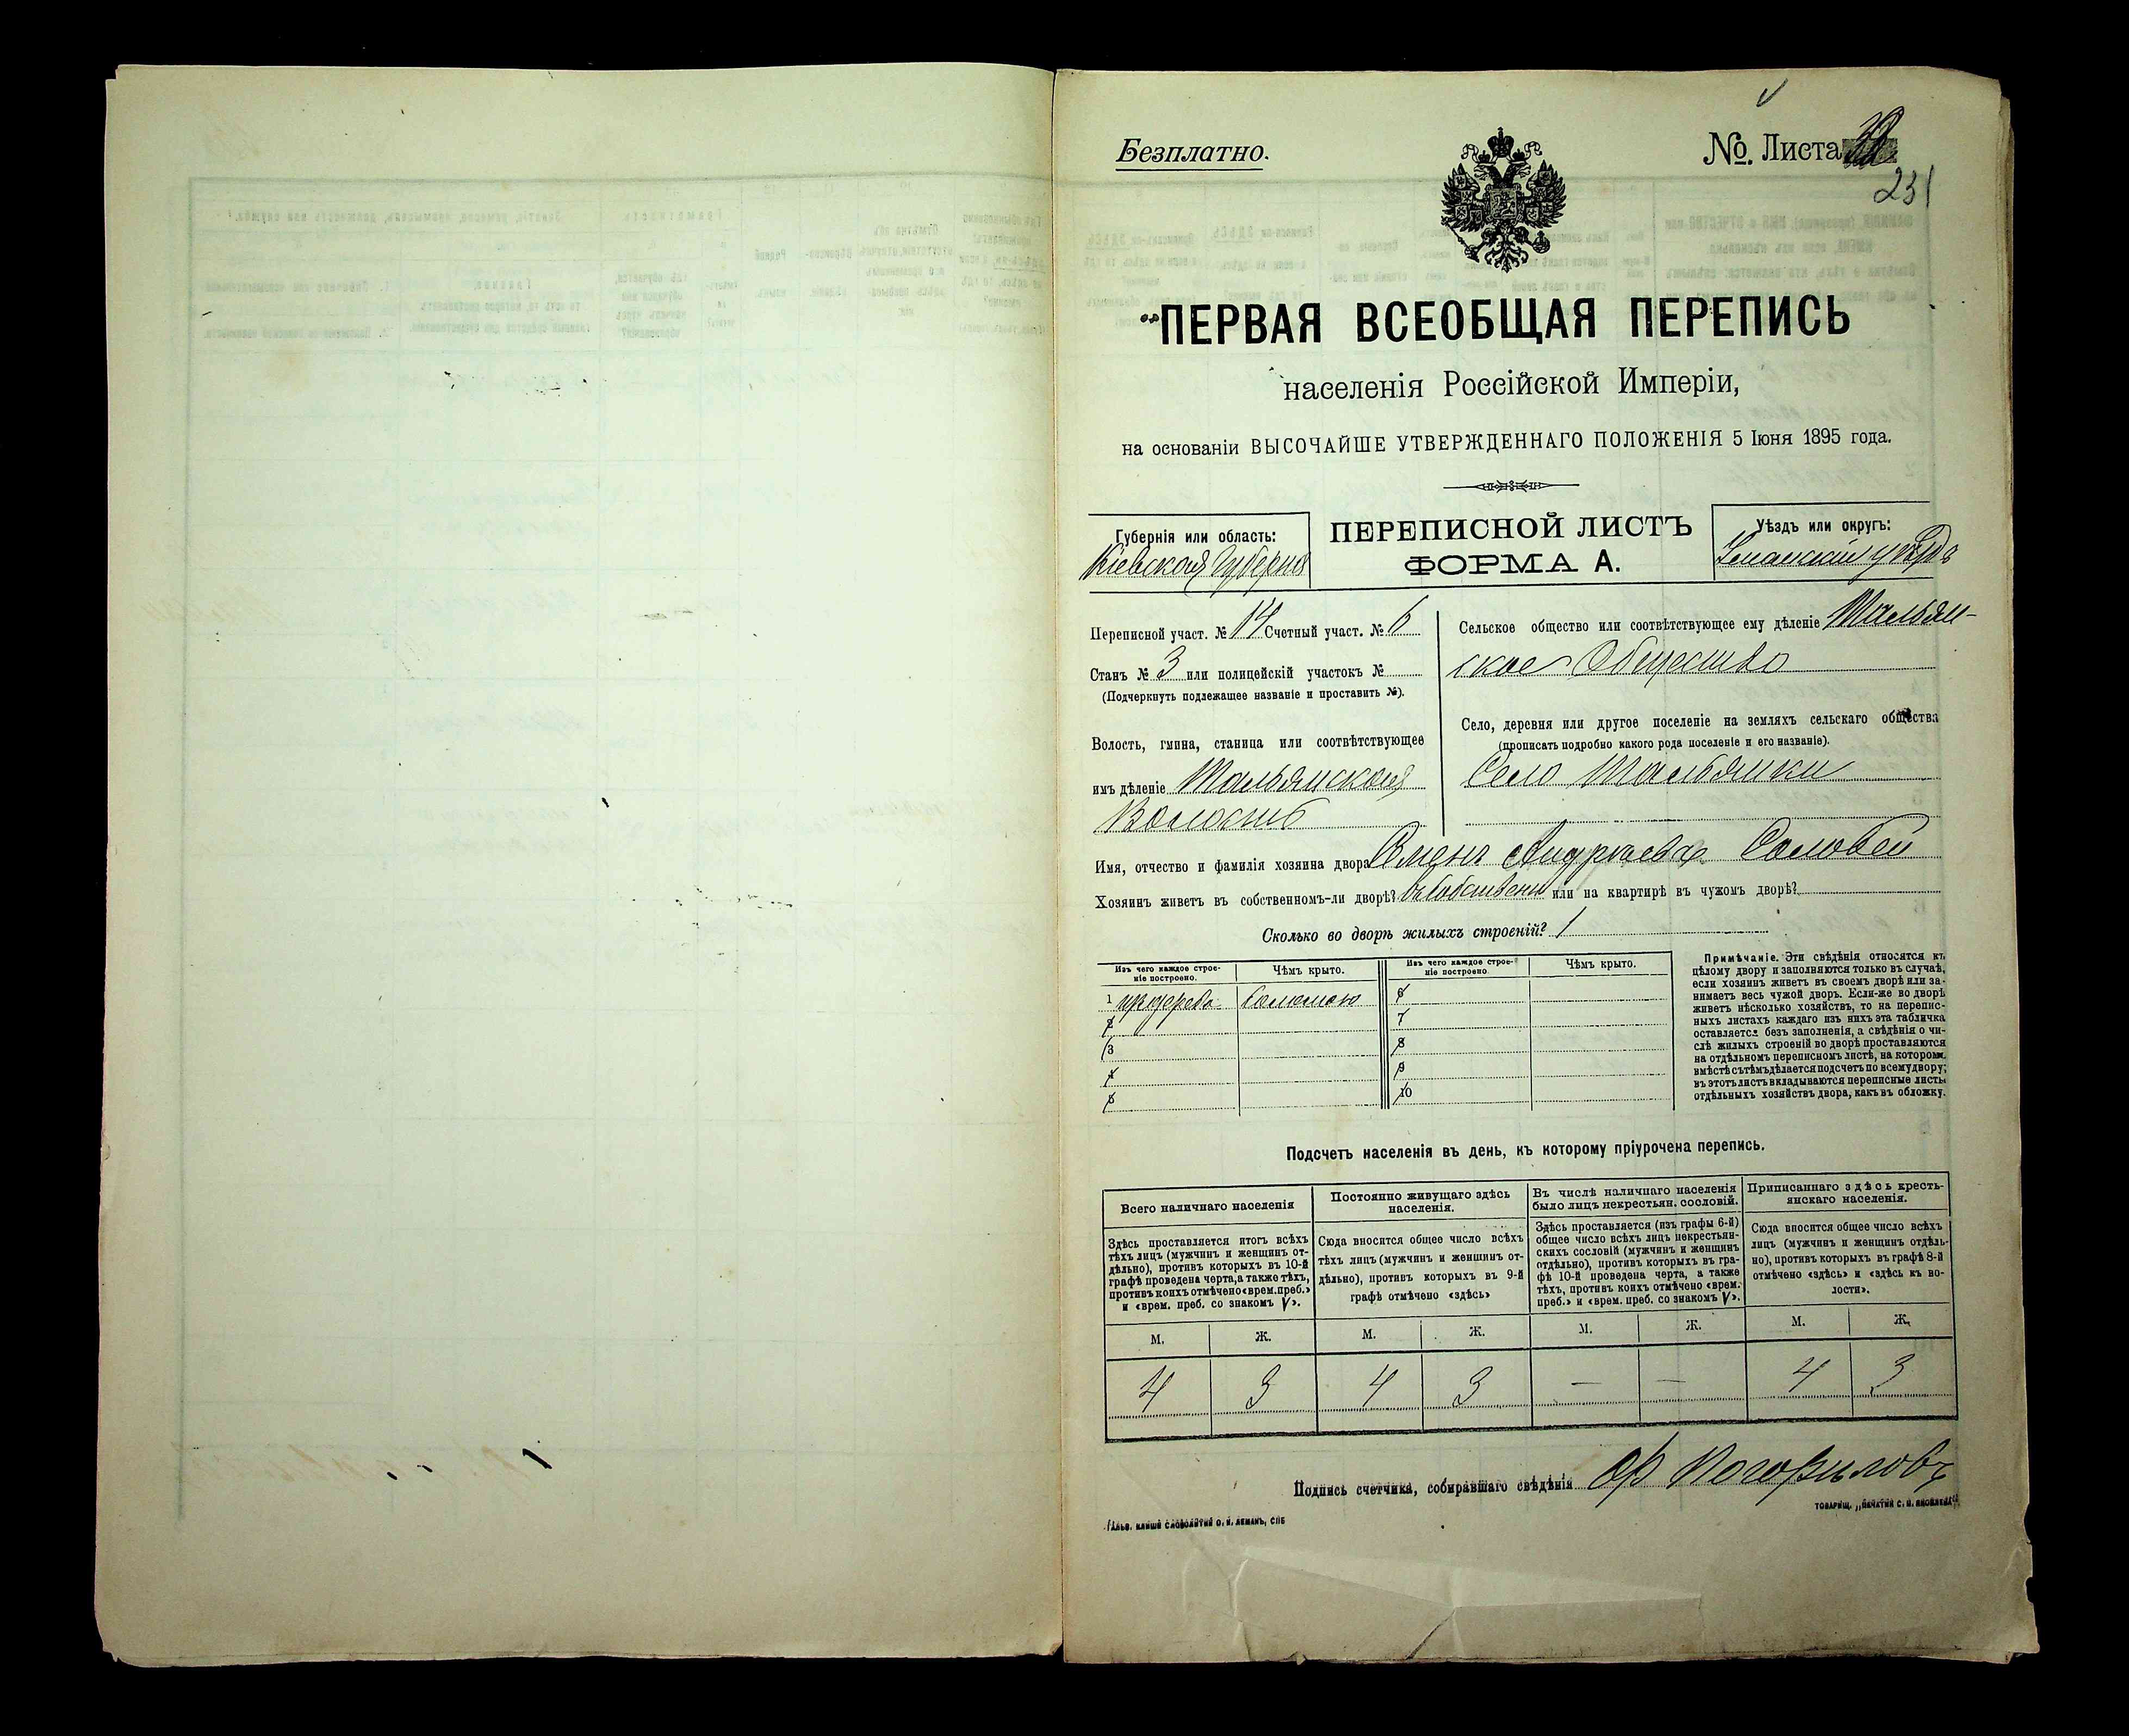 Безплатно.
№. Листа
231
ПЕРВАЯ ВСЕОБЩАЯ ПЕРЕПИСЬ
населенія Россійской Имперіи,
на основаніи ВЫСОЧАЙШЕ УТВЕРЖДЕННАГО ПОЛОЖЕНІЯ 5 Іюня 1895 года.
Губернія или область:
Кіевская Губернія
ПЕРЕПИСНОЙ ЛИСТЪ
ФОРМА А.
Уѣздъ или округъ:
Уманскій уѣздъ
Переписной участ. № 14 Счетный участ. № 6
Станъ № 3 или полицейскій участокъ №
(Подчеркнуть подлежащее названіе и проставить №).
Волость, гмина, станица или соотвѣтствующее
имъ дѣленіе Тальянская
Волость
Сельское общество или соотвѣтствующее ему дѣленіе Тальян-
ское Общество
Село, деревня или другое поселеніе на земляхъ сельскаго общества
(прописать подробно какого рода поселеніе и его названіе).
Село Тальянки
Имя, отчество и фамилія хозяина двора Семенъ Андреевъ Соловей
Хозяинъ живетъ въ собственномъ-ли дворѣ? въ собственн или на квартирѣ въ чужомъ дворѣ?
Сколько во дворѣ жилыхъ строеній? 1
Изъ чего каждое строе-
ніе построено.
Чѣмъ крыто.
Изъ чего каждое строе-
ніе построено.
Чѣмъ крыто.
1 изъ дерева Соломою
2
3
4
5
6
7
8
9
10
Примѣчаніе. Эти свѣдѣнія относятся къ
цѣлому двору и заполняются только въ случаѣ,
если хозяинъ живетъ въ своемъ дворѣ или за-
нимаетъ весь чужой дворъ. Если-же во дворѣ
живетъ нѣсколько хозяйствъ, то на перепис-
ныхъ листахъ каждаго изъ нихъ эта табличка
оставляется безъ заполненія, а свѣдѣнія о чи-
слѣ жилыхъ строеній во дворѣ проставляются
на отдѣльномъ переписномъ листѣ, на которомъ
вмѣстѣ съ тѣмъ дѣлается подсчетъ по всему двору;
въ этотъ листъ вкладываются переписные листы
отдѣльныхъ хозяйствъ двора, какъ въ обложку.
Подсчетъ населенія въ день, къ которому пріурочена перепись.
Всего наличнаго населенія
Здѣсь проставляется итогъ всѣхъ
тѣхъ лицъ (мужчинъ и женщинъ от-
дѣльно), противъ которыхъ въ 10-й
графѣ проведена черта, а также тѣхъ,
противъ коихъ отмѣчено «врем. преб.»
и «врем. преб. со знакомъ V».
Постоянно живущаго здѣсь
населенія.
Сюда вносится общее число всѣхъ
тѣхъ лицъ (мужчинъ и женщинъ от-
дѣльно), противъ которыхъ въ 9-й
графѣ отмѣчено «здѣсь»
Въ числѣ наличнаго населенія
было лицъ некрестьян. сословій.
Здѣсь проставляется (изъ графы 6-й)
общее число всѣхъ лицъ некрестьян-
скихъ сословій (мужчинъ и женщинъ
отдѣльно), противъ которыхъ въ гра-
фѣ 10-й проведена черта, а также
тѣхъ, противъ коихъ отмѣчено «врем.
преб.» и «врем. преб. со знакомъ V».
Приписаннаго здѣсь кресть-
янскаго населенія.
Сюда вносится общее число всѣхъ
лицъ (мужчинъ и женщинъ отдѣль-
но), противъ которыхъ въ графѣ 8-й
отмѣчено «здѣсь» и «здѣсь къ во-
лости».
М. Ж. М. Ж. М. Ж. М. Ж.
4 3 4 3 — — 4 3
Подпись счетчика, собиравшаго свѣдѣнія